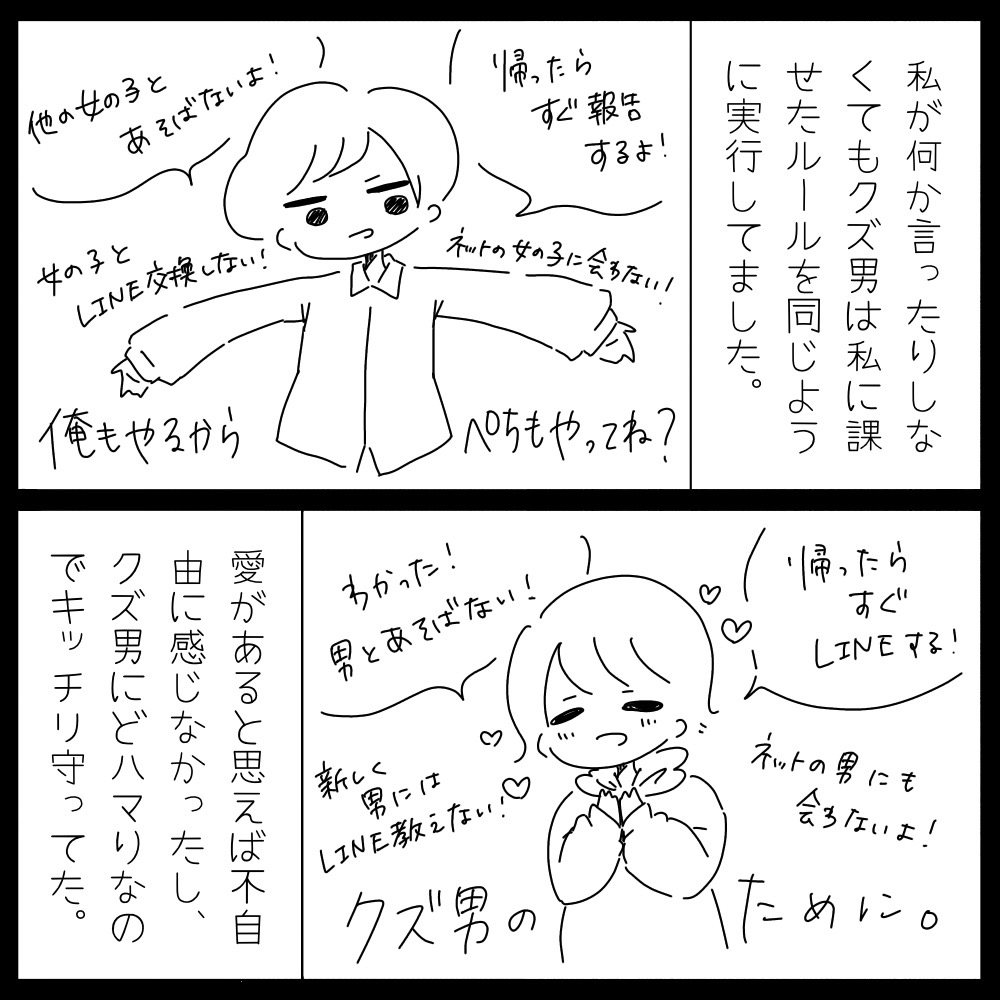 私が何か言ったりしな
くてもクズ男は私に課
せたルールを同じよう
に実行してました。
帰ったら
すぐ報告
するよ!
他の女の子と
あそばないよ!
ネットの女の子に会わない!
女の子と
LINE交換しない!
俺もやるから
ぺちもやってね?
帰ったら
すぐ
LINEする!
わかった!
男とあそばない!
ネットの男にも
会わないよ!
新しく
男には
LINE教えない!
クズ男の
ために。
愛があると思えば不自
由に感じなかったし、
クズ男にどハマりなの
でキッチリ守ってた。